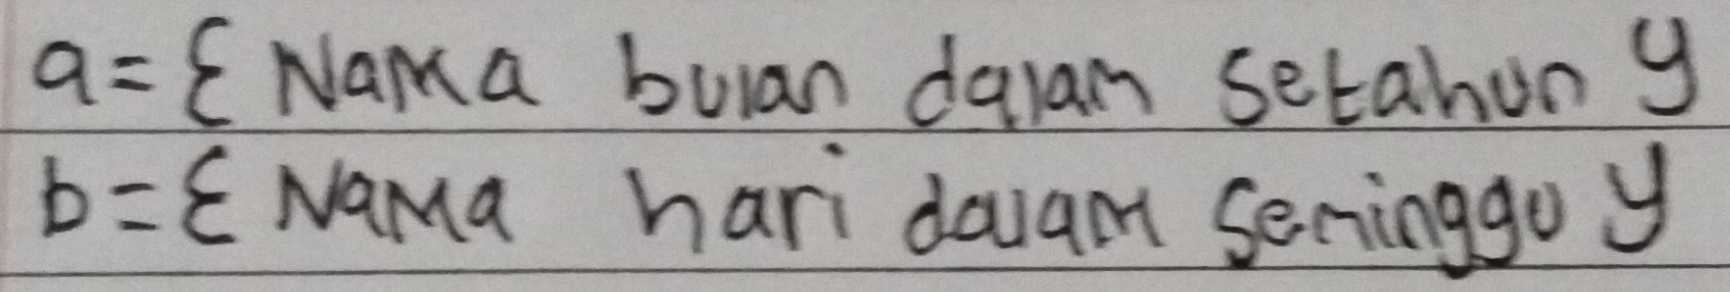 a = { Nama bulan dalam setahun }
b = { Nama hari dalam seminggu }